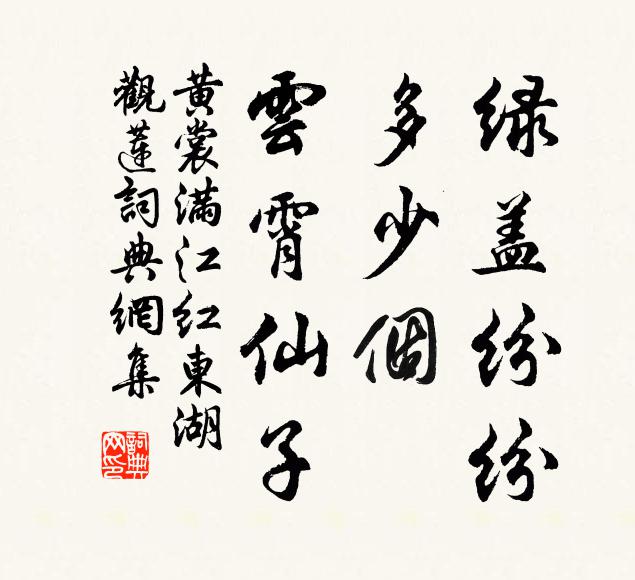 緑蓋紛紛
多少個
雲霄仙子
黄裳滿江紅東湖
觀蓮詞典網集
詞典网印